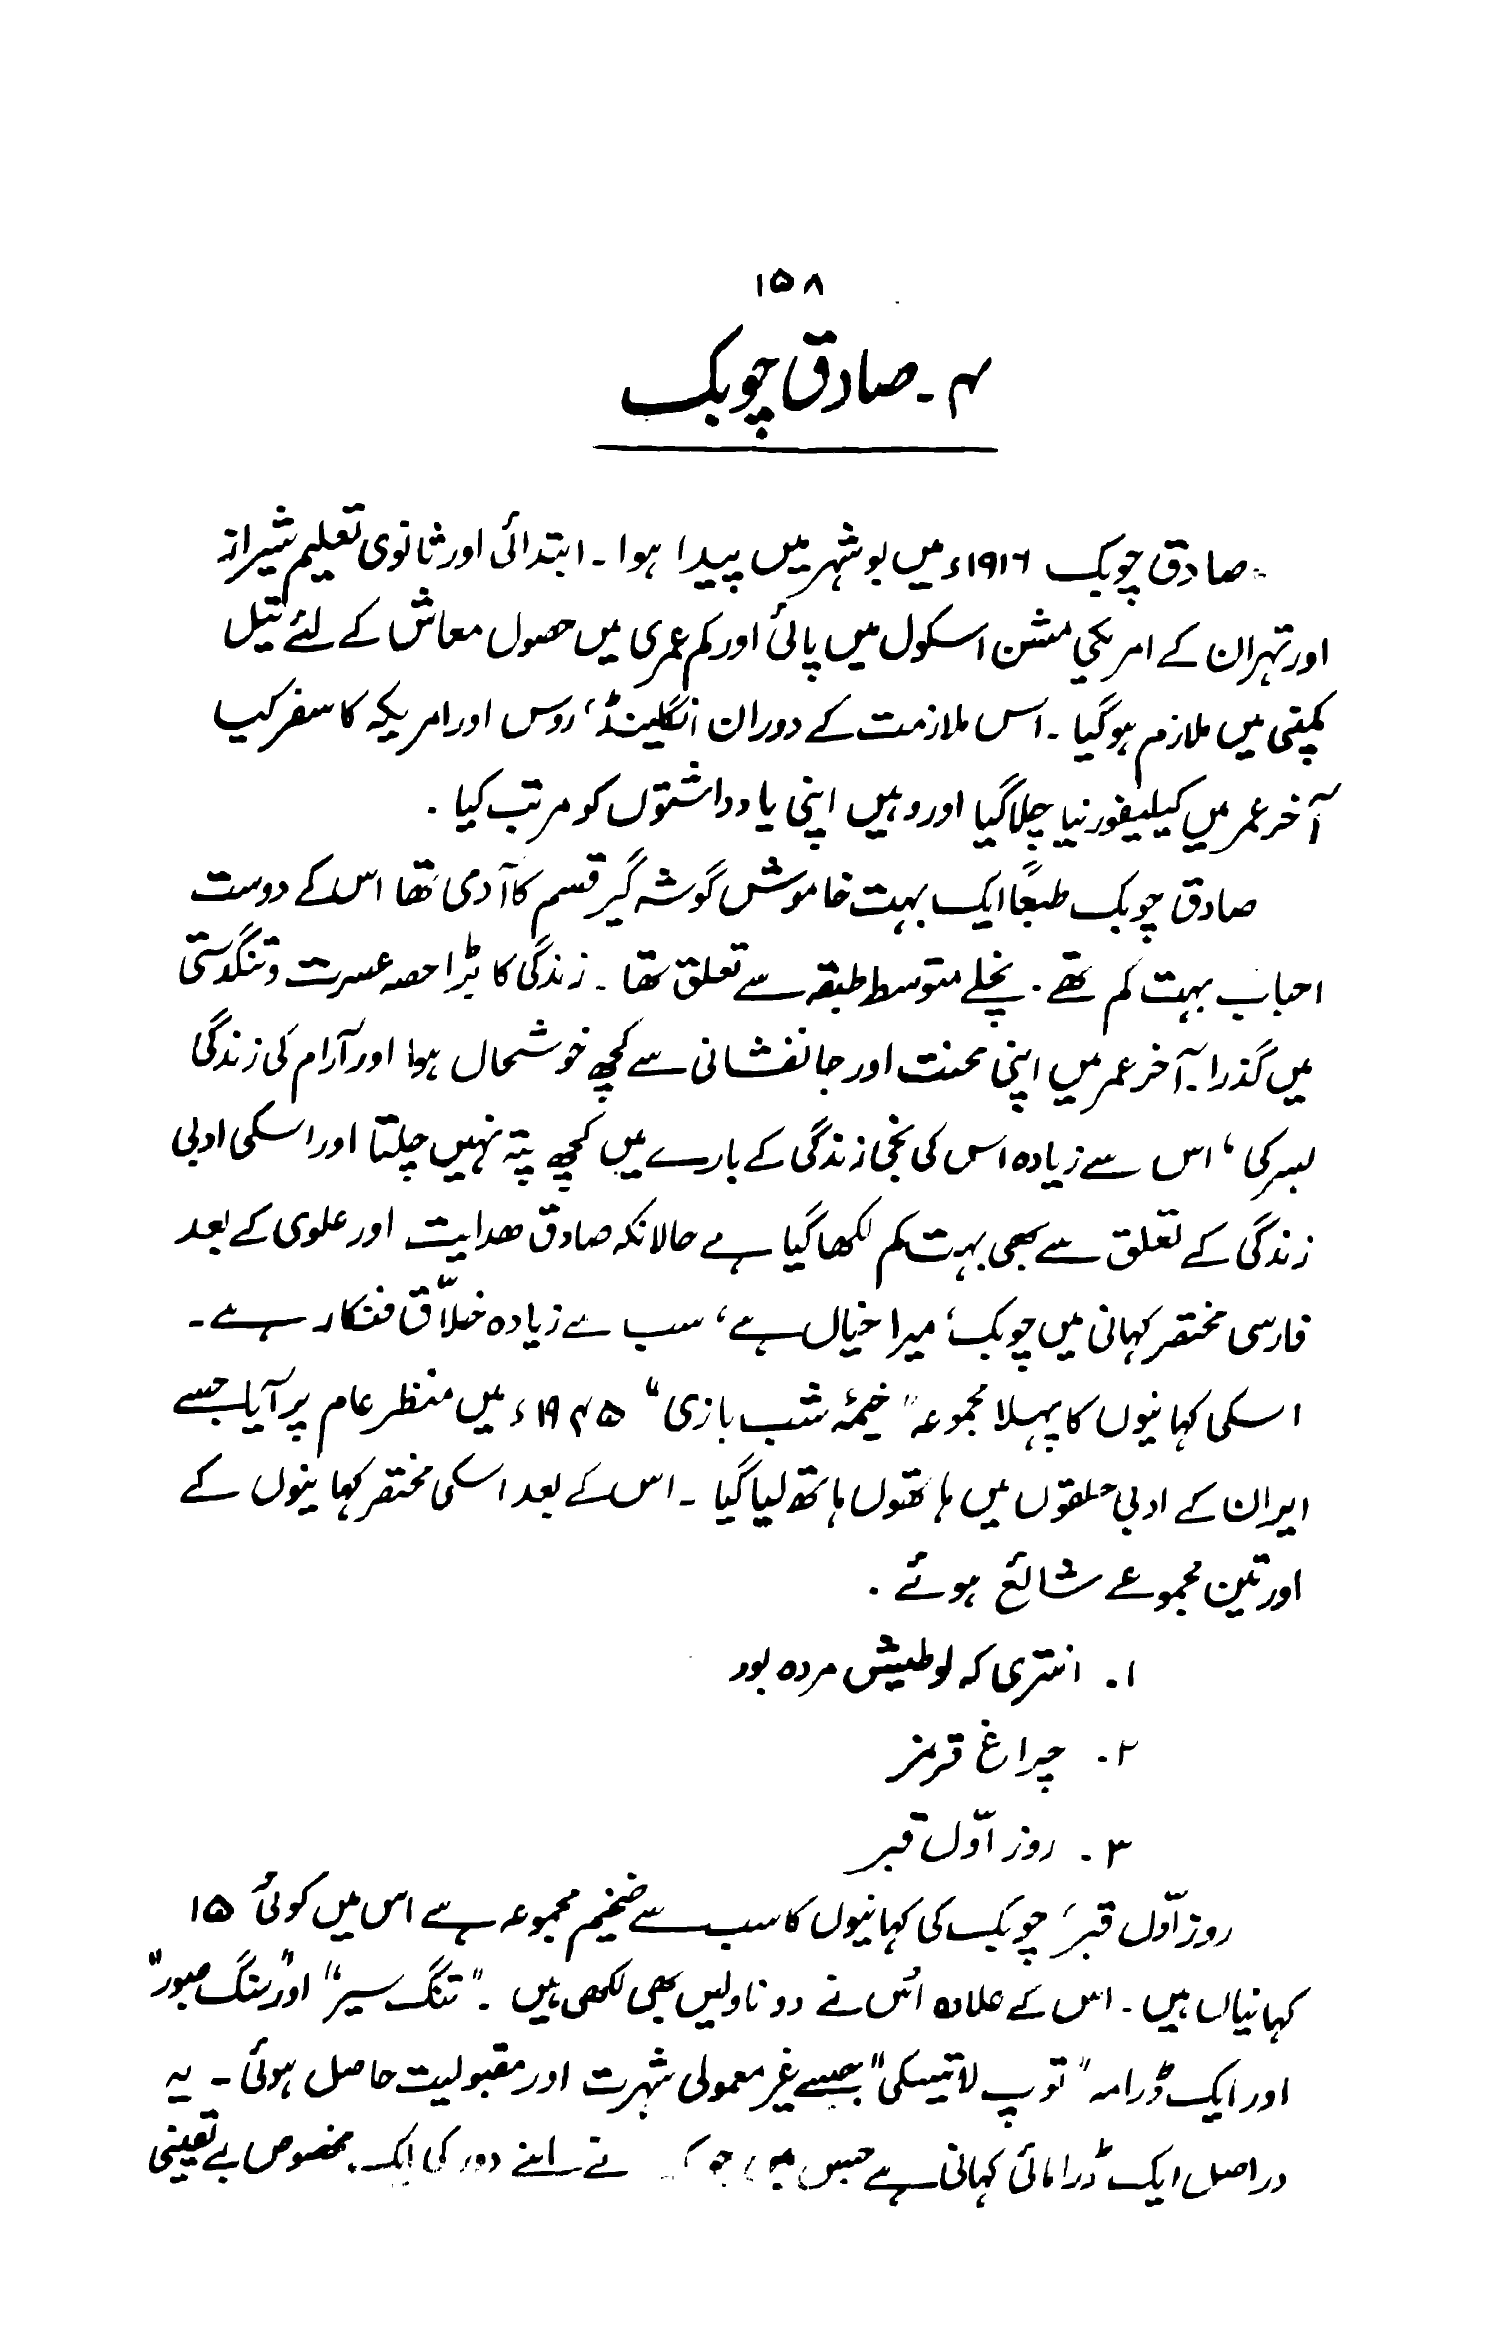 ۱۵۸
۴۔ صادق چوبک
صادق چوبک ۱۹۱۶ء میں بوشہر میں پیدا ہوا۔ ابتدائی اور ثانوی تعلیم شیراز
اور تہران کے امریکی مشن اسکول میں پائی اور کم عمری میں حصول معاش کے لئے تیل
کمپنی میں ملازم ہوگیا۔ اس ملازمت کے دوران انگلینڈ، روس اور امریکہ کا سفر کیا
آخر عمر میں کیلیفورنیا چلا گیا اور وہیں اپنی یادداشتوں کو مرتب کیا۔
صادق چوبک طبعاً ایک بہت خاموش گوشہ گیر قسم کا آدمی تھا اس کے دوست
احباب بہت کم تھے۔ نچلے متوسط طبقہ سے تعلق تھا۔ زندگی کا بڑا حصہ عسرت و تنگدستی
میں گذرا۔ آخر عمر میں اپنی محنت اور جانفشانی سے کچھ خوشحال ہوا اور آرام کی زندگی
بسر کی، اس سے زیادہ اس کی نجی زندگی کے بارے میں کچھ پتہ نہیں چلتا اور اسکی ادبی
زندگی کے تعلق سے بھی بہت کم لکھا گیا ہے حالانکہ صادق ھدایت اور علوی کے بعد
فارسی مختصر کہانی میں چوبک، میرا خیال ہے، سب سے زیادہ خلاّق فنکار ہے۔
اسکی کہانیوں کا پہلا مجموعہ "خیمۂ شب بازی" ۱۹۴۵ء میں منظر عام پر آیا جسے
ایران کے ادبی حلقوں میں ہاتھوں ہاتھ لیا گیا۔ اس کے بعد اسکی مختصر کہانیوں کے
اور تین مجموعے شائع ہوئے۔
۱۔ انتری کہ لوطیش مردہ بود
۲۔ چراغ قرمز
۳۔ روز اوّل قبر
روز اوّل قبر، چوبک کی کہانیوں کا سب سے ضخیم مجموعہ ہے اس میں کوئی ۱۵
کہانیاں ہیں۔ اس کے علاوہ اُس نے دو ناولیں بھی لکھی ہیں۔ "تنگ سیر" اور "سنگ صبور"
اور ایک ڈرامہ "توپ لاتیسکی" جسے غیر معمولی شہرت اور مقبولیت حاصل ہوئی۔ یہ
دراصل ایک ڈرامائی کہانی ہے جس میں نے اپنے دور کی ایک مخصوص بے یقینی